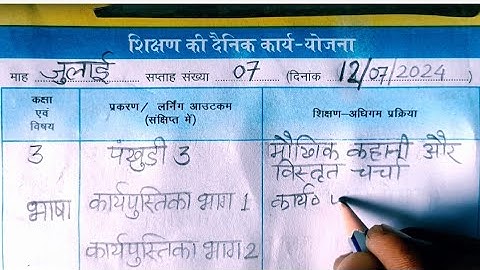 शिक्षण की दैनिक कार्य-योजना
माह जुलाई सप्ताह संख्या 07 (दिनांक 12/07/2024)
कक्षा एवं विषय
प्रकरण/ लर्निंग आउटकम (संक्षिप्त में)
शिक्षण-अधिगम प्रक्रिया
3 पंखुडी 3 मौखिक कहानी और
विस्तृत चर्चा
भाषा कार्यपुस्तिका भाग 1 कार्य०
कार्यपुस्तिका भाग 2